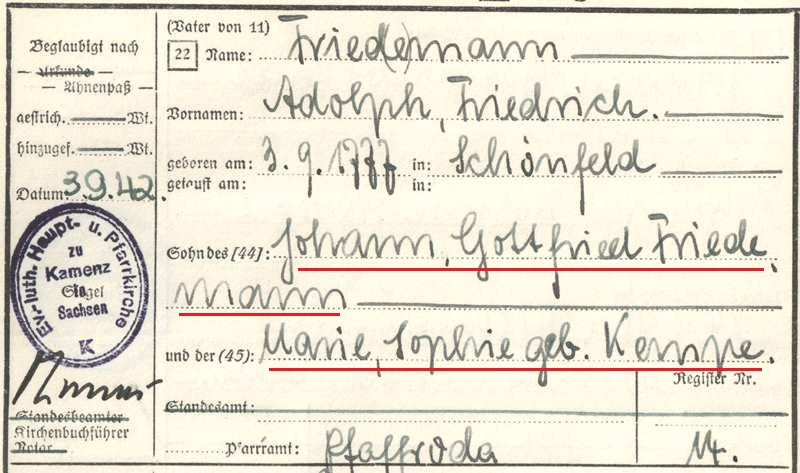 (Vater von 11)
Beglaubigt nach
22 Name: Friedemann
Urkunde
Ahnenpaß
Vornamen: Adolph, Friedrich.
gestrich. Wt.
hinzugef. Wt.
geboren am: 3. 9. 1777 in: Schönfeld
getauft am: in:
Datum: 3.9.42.
Sohn des [44]: Johann, Gottfried Friede,
mann
Ev.-luth. Haupt- u. Pfarrkirche
zu
Kamenz
in
Siegel
Sachsen
K
und der (45): Marie, Sophie geb. Kempe.
Register Nr.
Standesbeamter
Kirchenbuchführer
Notar
Standesamt:
Pfarramt: Pfaffroda 14.